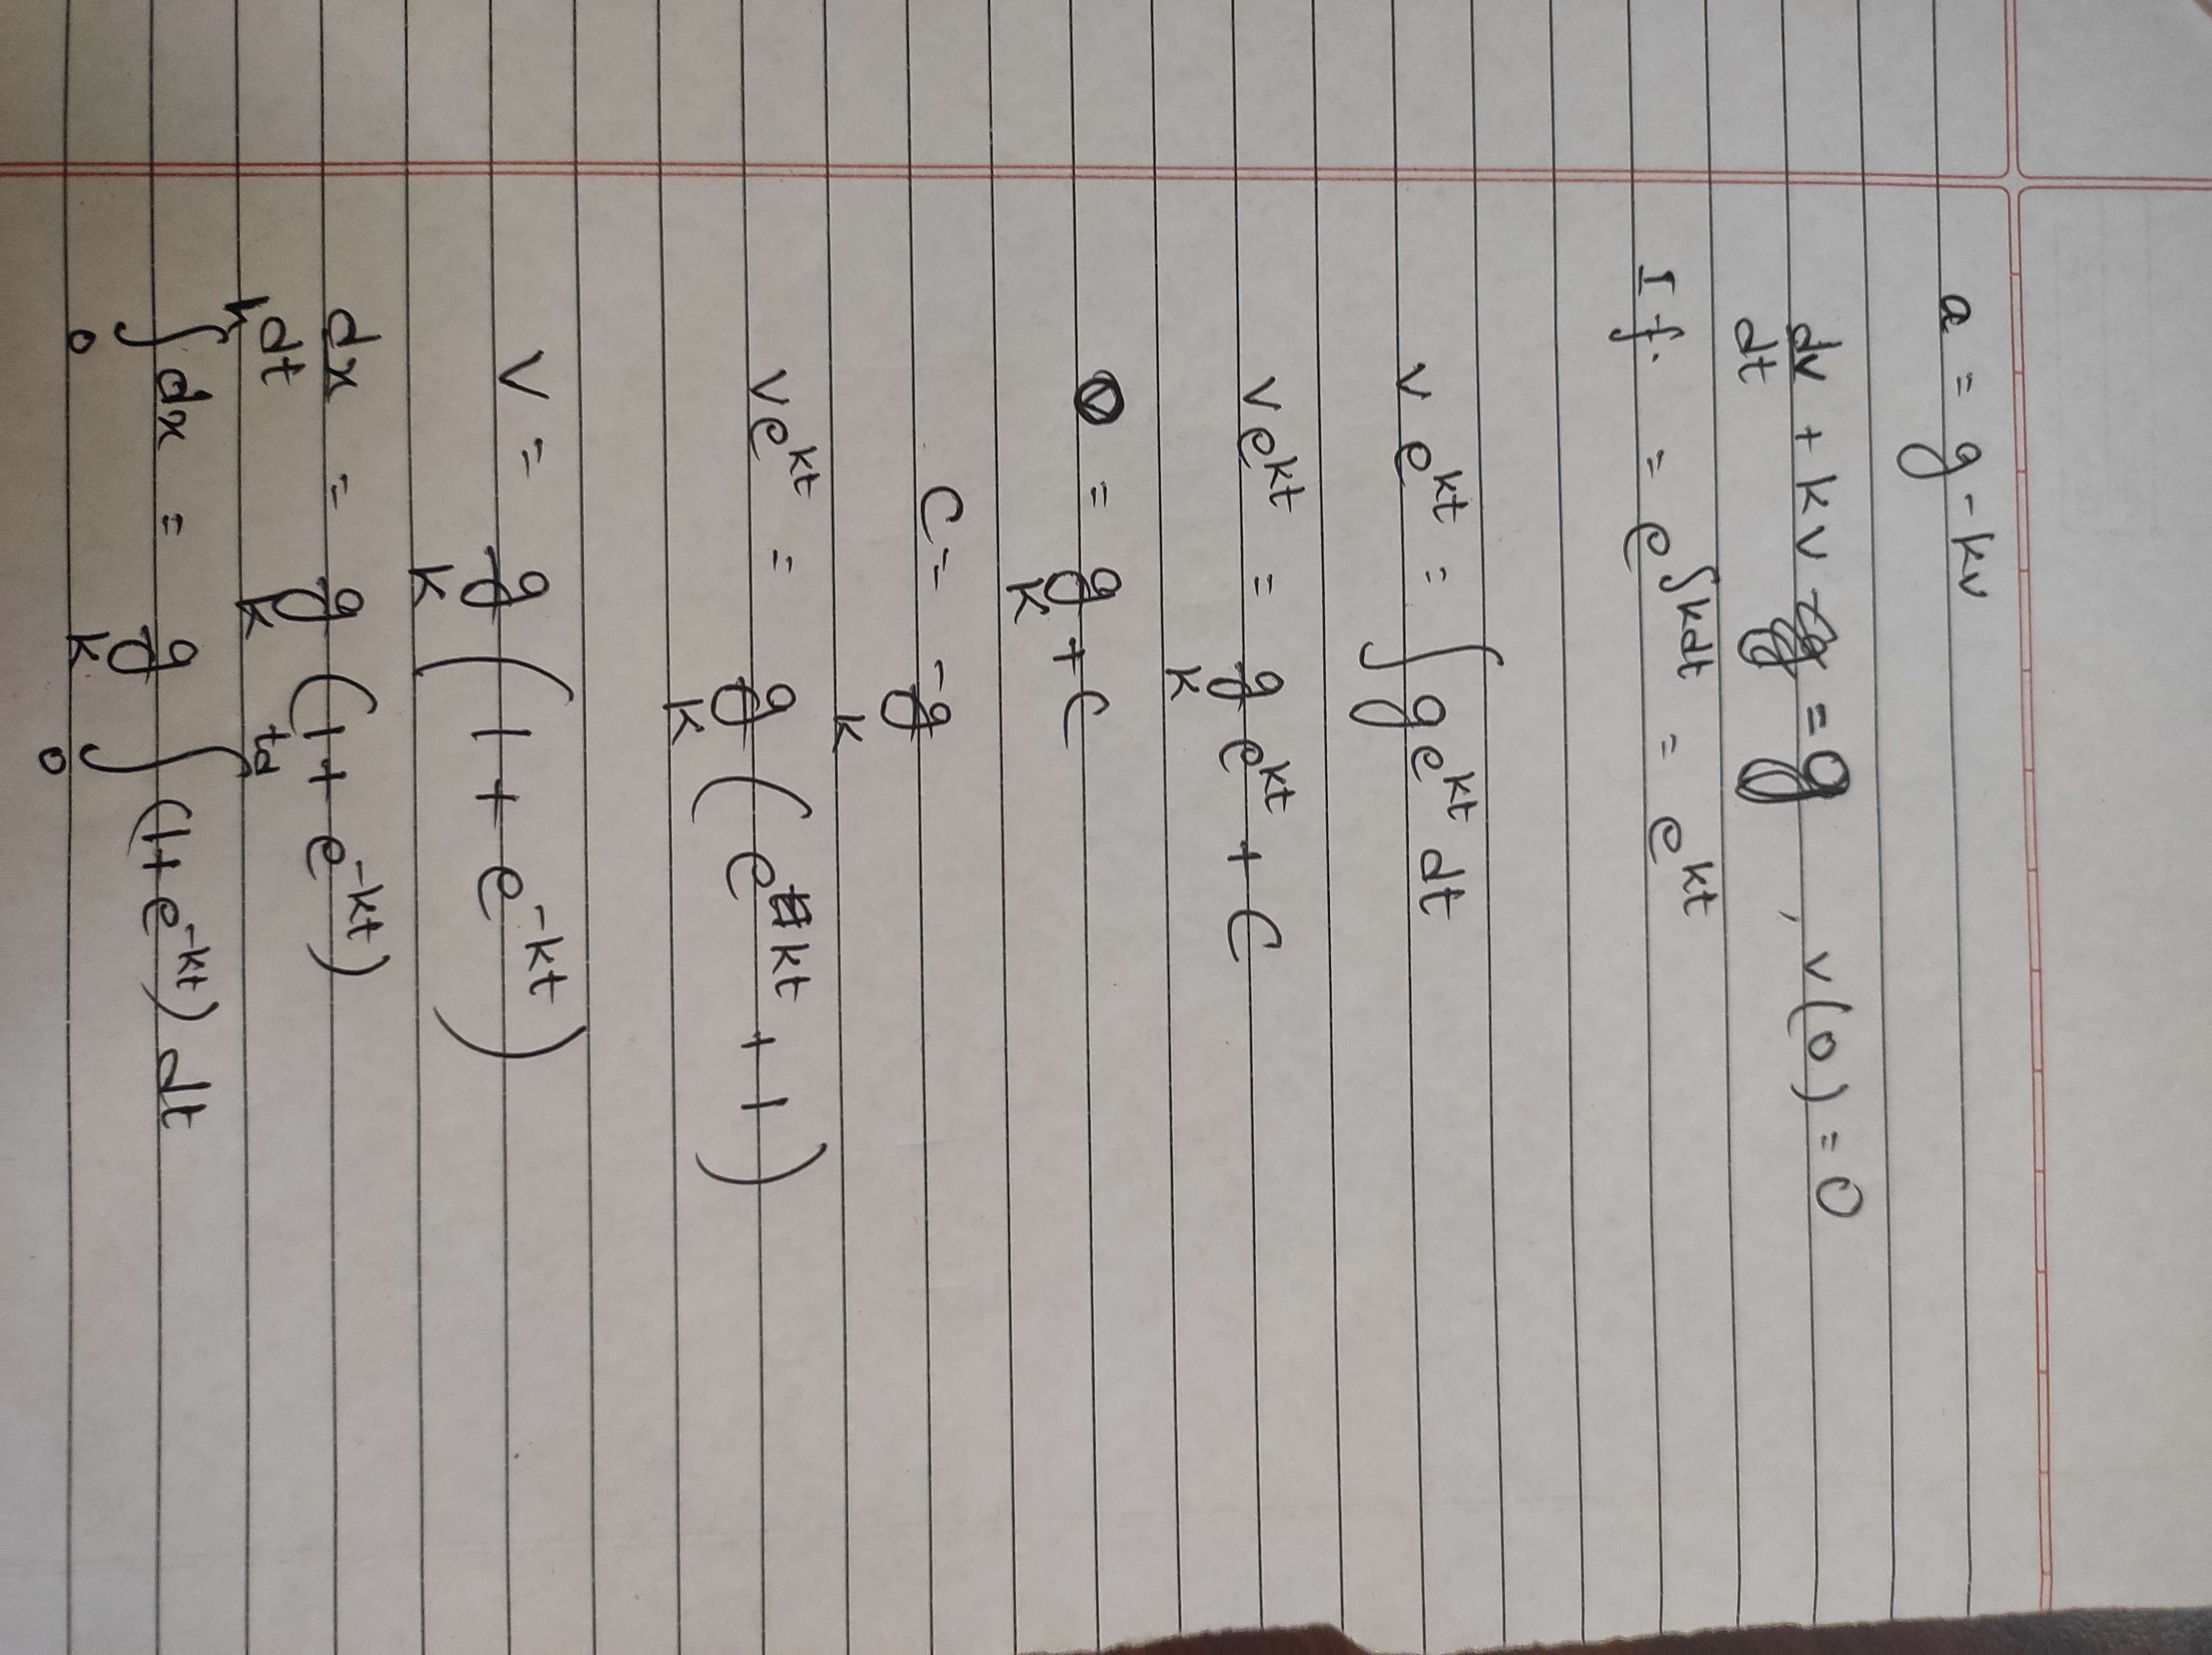 a = g - kv
dv/dt + kv = g , v(0) = 0
I.f. = e^∫kdt = e^kt
v e^kt = ∫ g e^kt dt
v e^kt = g/k e^kt + C
0 = g/k + C
C = -g/k
v e^kt = g/k ( e^kt + 1 )
v = g/k ( 1 + e^-kt )
dx/dt = g/k ( 1 + e^-kt )
∫_0^h dx = g/k ∫_0^td ( 1 + e^-kt ) dt